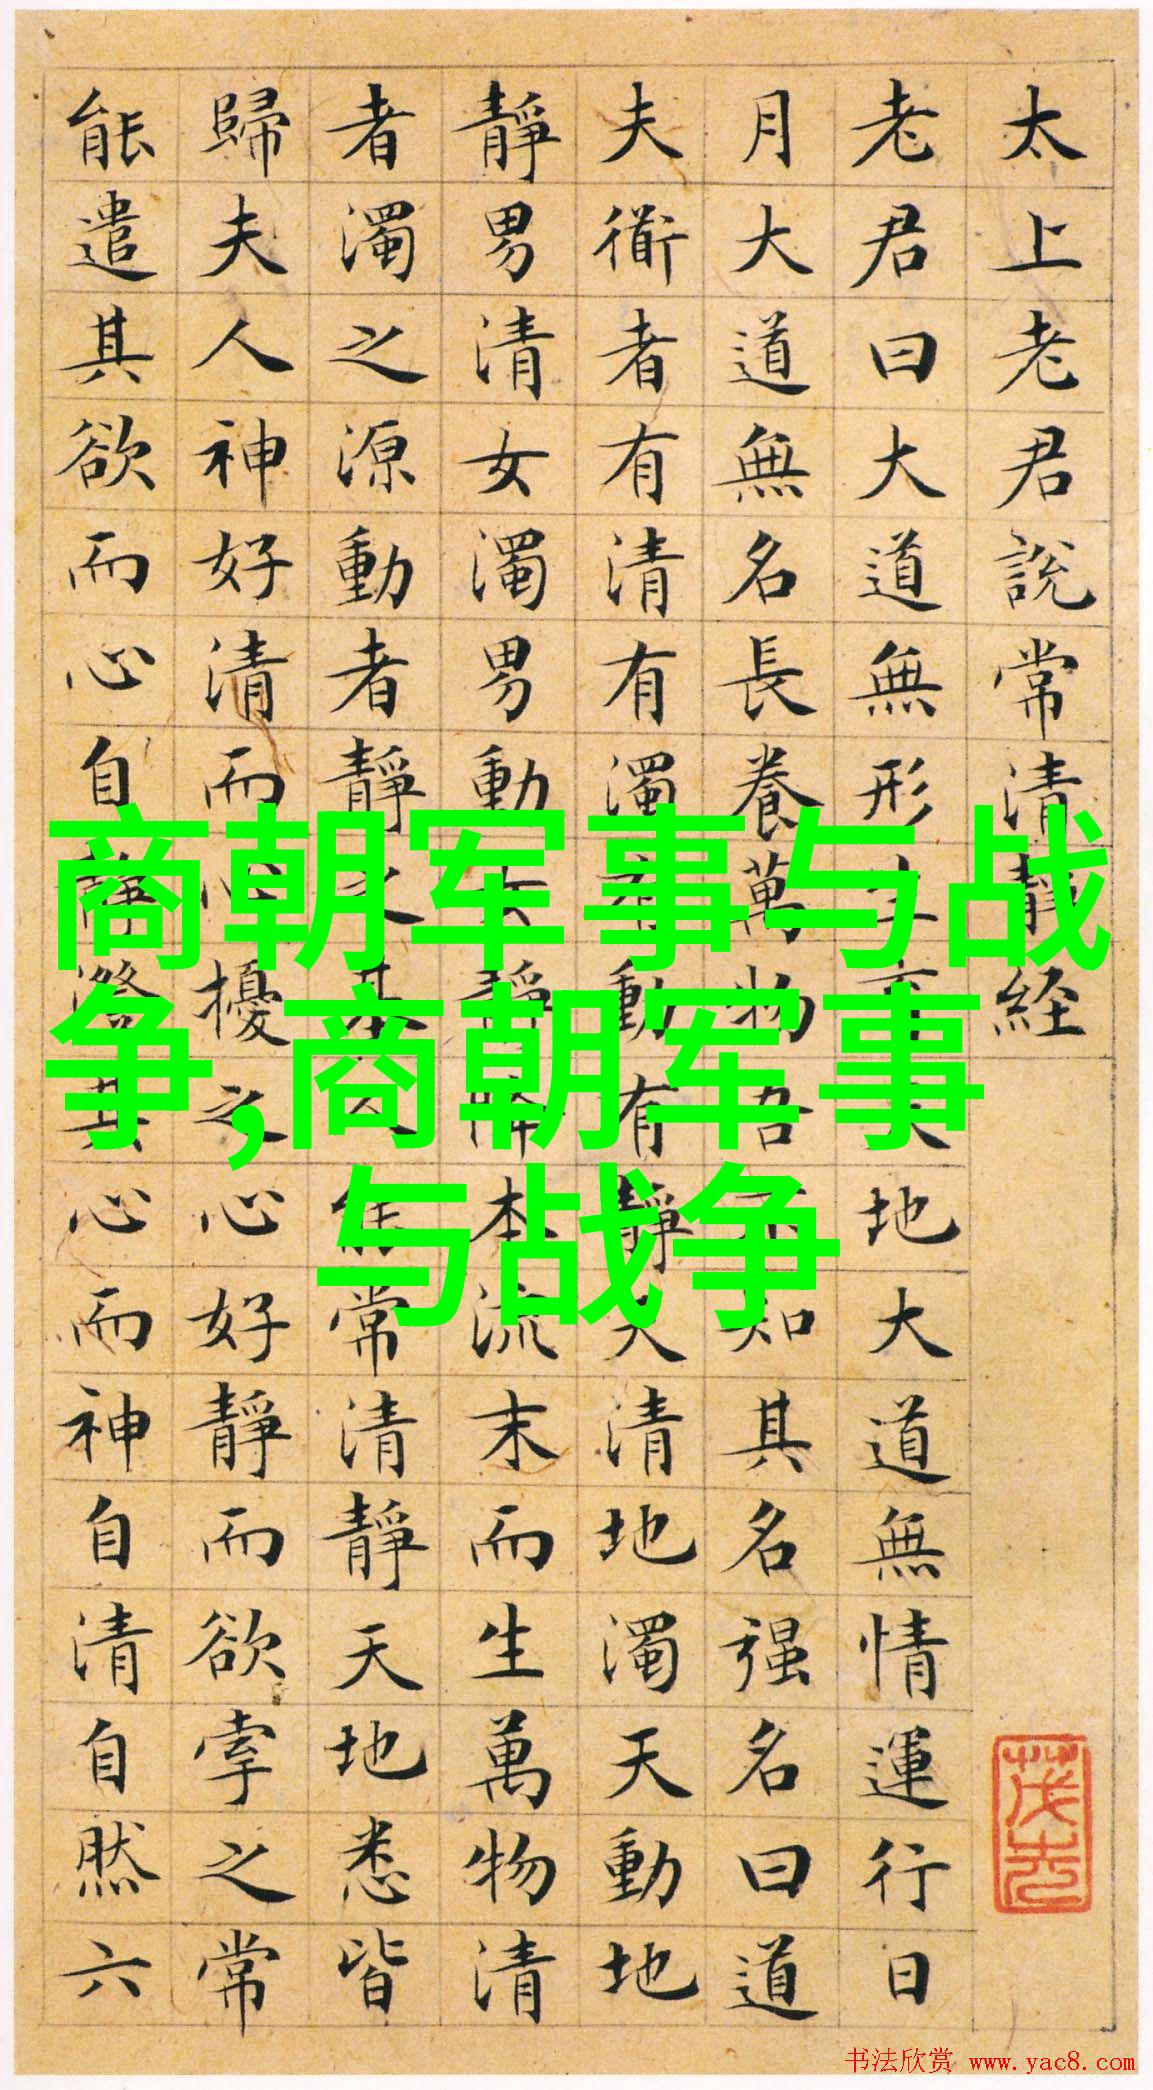 太上老君說常清靜経
老君曰大道無形天地大道無情運行日
月大道無名長養萬物吾知其名强名曰道
夫衜者有清有濁有動有靜天清地濁天動地
靜男清女濁男動女靜降本流末而生萬物清
者濁之源動者靜之基能常清靜天地悉皆
歸夫人神好清而心擾之心好靜而欲牽之常
能遣其欲而心自靜澄其心而神自清自然六
商朝军事与战
争,商朝军事
与战争
书法欣赏 www.yac8.com